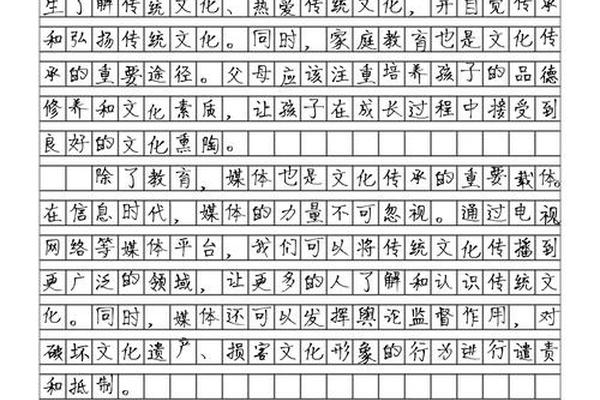 生了解传统文化、热爱传统文化，并自觉传承
和弘扬传统文化。同时，家庭教育也是文化传
承的重要途径。父母应该注重培养孩子的品德
修养和文化素质，让孩子在成长过程中接受到
良好的文化熏陶。
除了教育，媒体也是文化传承的重要载体。
在信息时代，媒体的力量不可忽视。通过电视
网络等媒体平台，我们可以将传统文化传播到
更广泛的领域，让更多的人了解和认识传统文
化。同时，媒体还可以发挥舆论监督作用，对
破坏文化遗产、损害文化形象的行为进行谴责
和抵制。